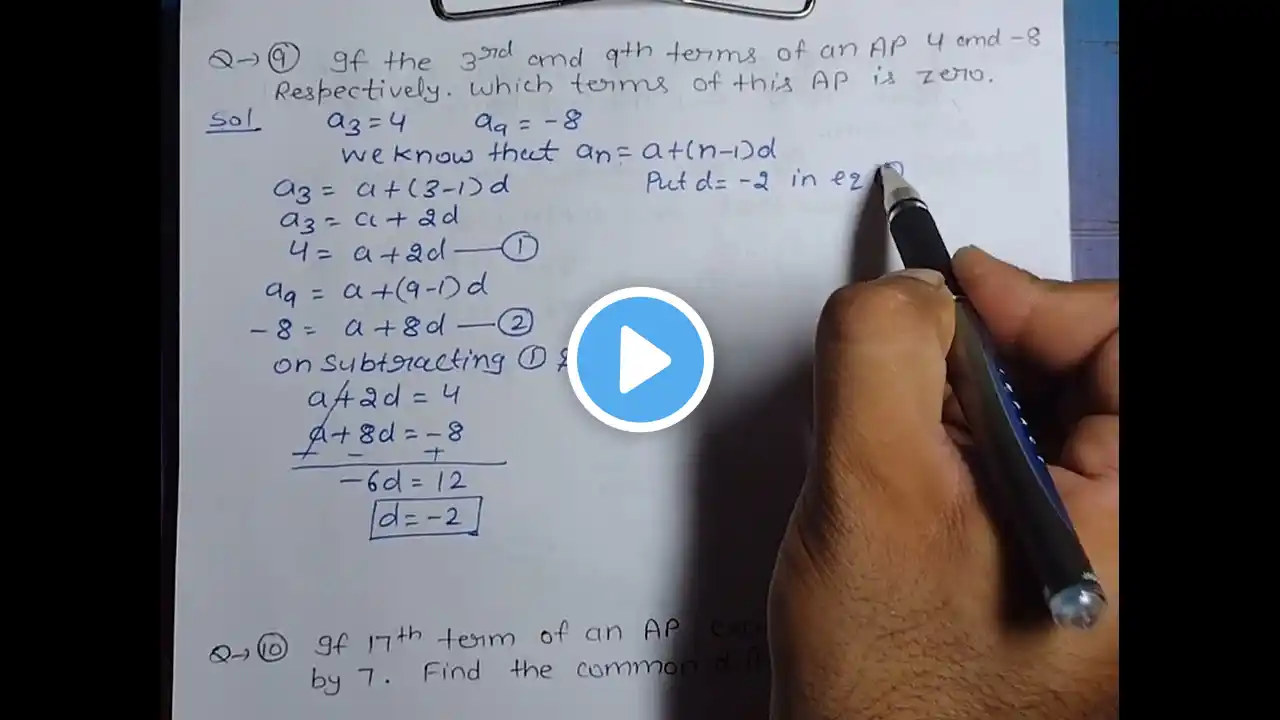 Q→ ⑨ If the 3rd and 9th terms of an AP 4 and -8
Respectively. which terms of this AP is zero.
Sol a3 = 4 a9 = -8
we know that an = a+(n-1)d
a3 = a+(3-1)d
a3 = a + 2d
4 = a+2d — ①
a9 = a+(9-1)d
-8 = a+8d — ②
on subtracting ①
a+2d = 4
a+8d = -8
- - +
-6d = 12
d = -2
Put d = -2 in eq
Q→ ⑩ If 17th term of an AP
by 7. Find the common